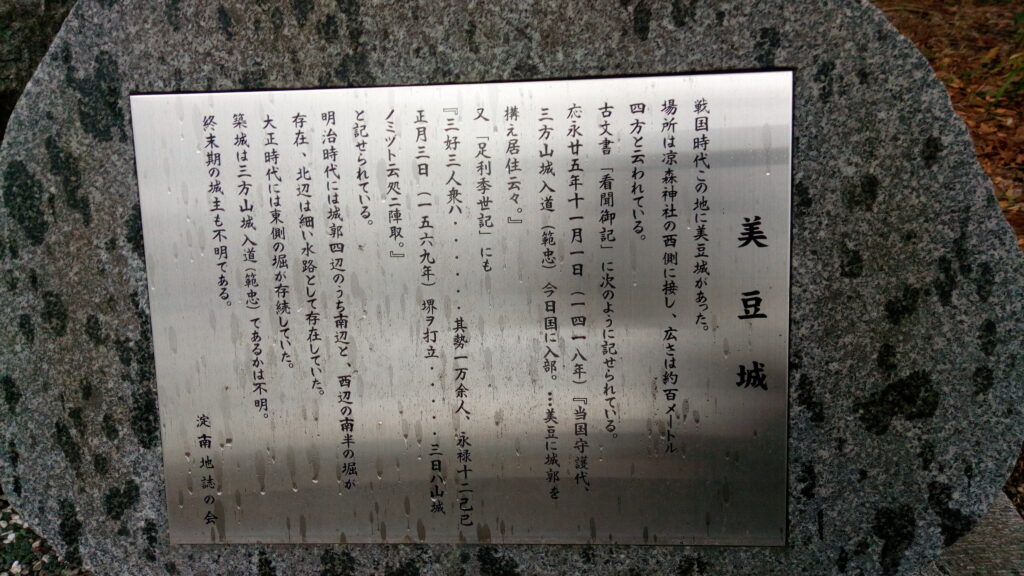 美豆城
戦国時代この地に美豆城があった。
場所は涼森神社の西側に接し、広さは約百メートル
四方と云われている。
古文書「看聞御記」に次のように記せられている。
応永廿五年十一月一日(一四一八年)『当国守護代、
三方山城入道(範忠)今日国に入部。…美豆に城郭を
構え居住云々。』
又「足利季世記」にも
『三好三人衆ハ・・・・・其勢一万余人、永禄十二己己
正月三日(一五六九年)堺ヲ打立・・・・三日ハ山城
ノミツト云処ニ陣取。』
と記せられている。
明治時代には城郭四辺のうち南辺と、西辺の南半の堀が
存在、北辺は細い水路として存在していた。
大正時代には東側の堀が存続していた。
築城は三方山城入道(範忠)であるかは不明。
終末期の城主も不明である。
淀南地誌の会